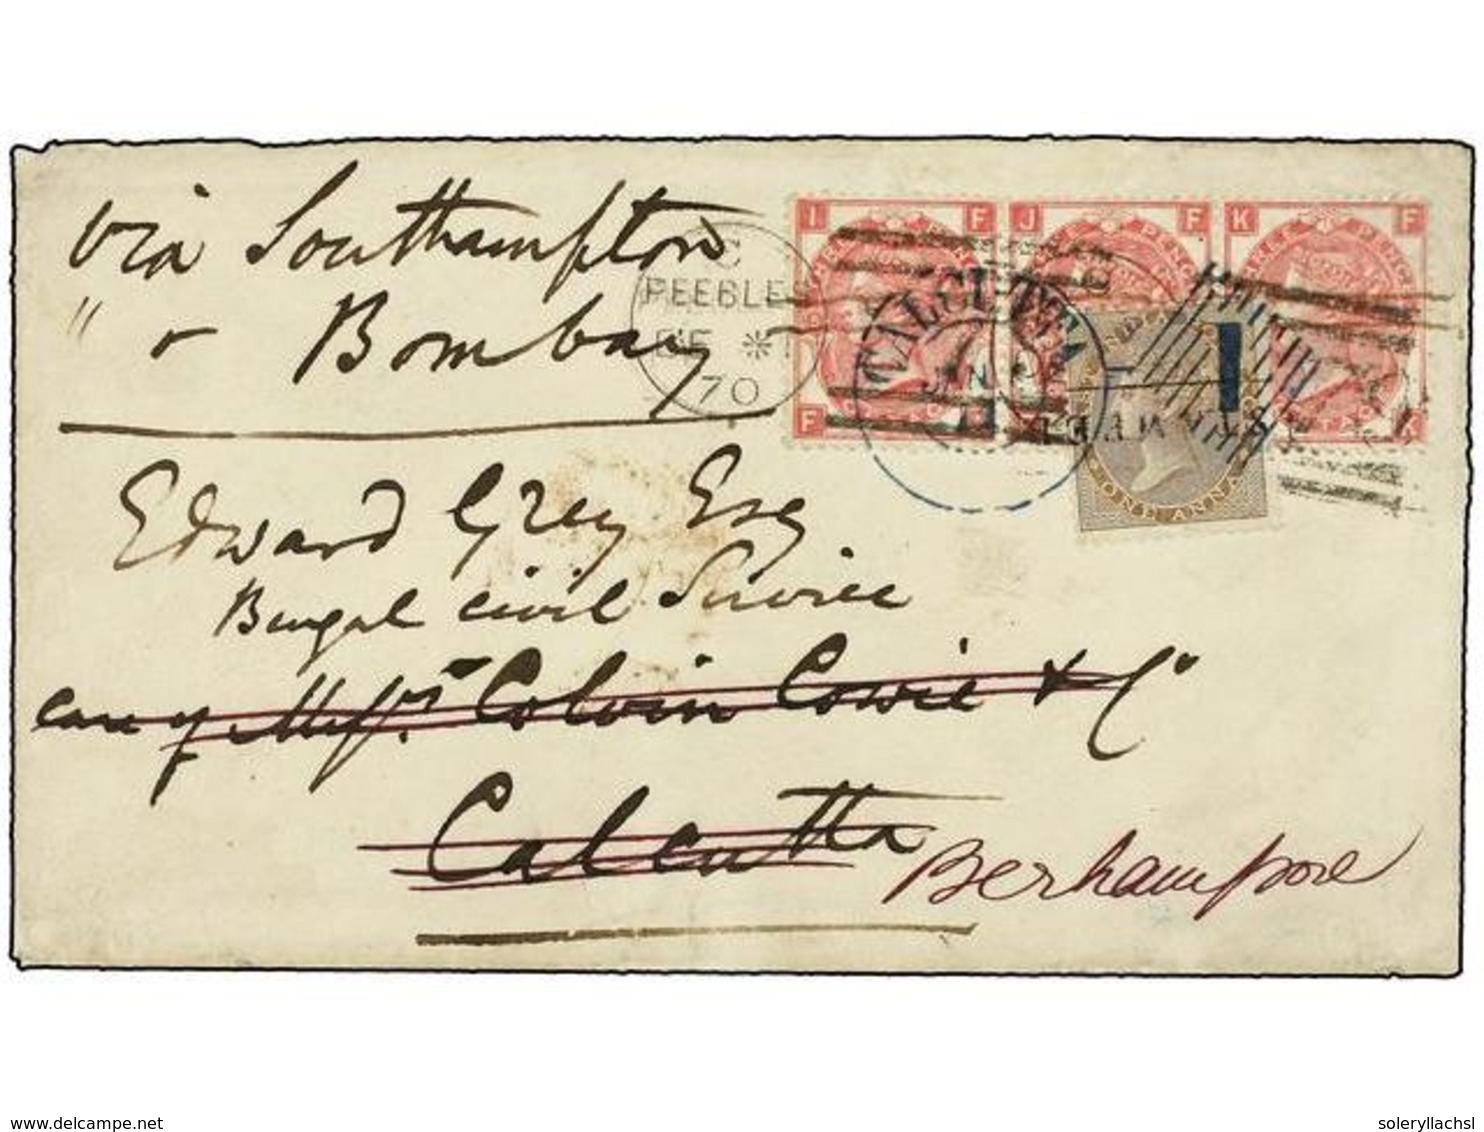 via Southampton
" & Bombay
Edward Grey Esq
Bengal Civil Service
care of Messrs. Colvin Cowie & Co
Calcutta
Berhampore
C
PEEBLES
DE * 1
70
I F
J F
K F
F
K
THREE PENCE
CALCUTTA
JAN
ONE ANNA
www.delcampe.net
soleryllachsl